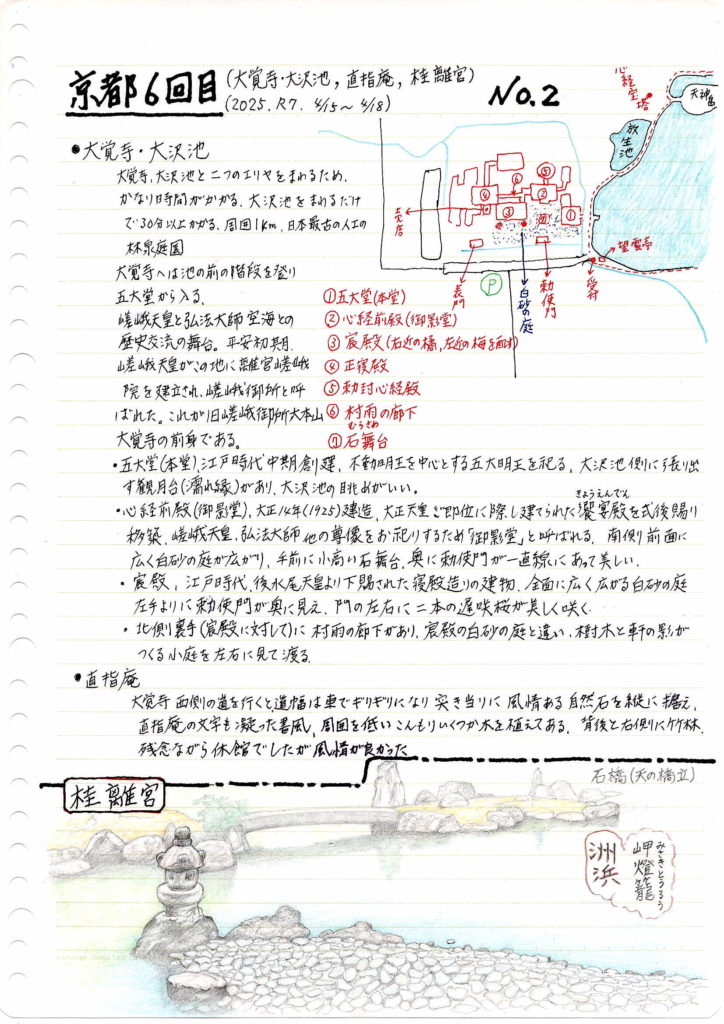 京都6回目
(大覚寺・大沢池,直指庵,桂離宮)
(2025.R7. 4/15～4/18)
No.2
心経宝塔
天神島
放生池
売店
表門
P
白砂の庭
勅使門
受付
望雲亭
①
②
③
④
⑤
⑥
⑦
• 大覚寺・大沢池
大覚寺、大沢池と二つのエリヤをまわるため、
かなり時間がかかる、大沢池をまわるだけ
で30分以上かかる、周囲1km、日本最古の人工の
林泉庭園
大覚寺へは池の前の階段を登り
五大堂から入る.
嵯峨天皇と弘法大師空海との
歴史交流の舞台。平安初期、
嵯峨天皇がこの地に離宮嵯峨
院を建立され、嵯峨御所と呼
ばれた。これが旧嵯峨御所大本山
大覚寺の前身である。
①五大堂(本堂)
②心経前殿(御影堂)
③宸殿(右近の橘,左近の梅を配す)
④正寝殿
⑤勅封心経殿
⑥村雨の廊下
むらさめ
⑦石舞台
・五大堂(本堂)、江戸時代中期創建、不動明王を中心とする五大明王を祀る、大沢池側に張り出
す観月台(濡れ縁)があり、大沢池の眺めがいい。
・心経前殿(御影堂)、大正14年(1925)建造、大正天皇ご即位に際し建てられた饗宴殿を式後賜り
きょうえんでん
移築、嵯峨天皇、弘法大師他の尊像をお祀りするため「御影堂」と呼ばれる、南側前面に
広く白砂の庭が広がり、手前に小高い石舞台、奥に勅使門が一直線にあって美しい.
・宸殿、江戸時代、後水尾天皇より下賜された寝殿造りの建物、全面に広く広がる白砂の庭
左手よりに勅使門が奥に見え、門の左右に二本の遅咲桜が美しく咲く.
・北側裏手(宸殿に対して)に村雨の廊下があり、宸殿の白砂の庭と違い、樹木と軒の影が
つくる小庭を左右に見て渡る.
• 直指庵
大覚寺西側の道を行くと道幅は車でギリギリになり突き当りに風情ある自然石を縦に据え、
直指庵の文字も凝った書風、周囲を低いこんもりいくつか木を植えてある. 背後と右側に竹林.
残念ながら休館でしたが風情が良かった
桂離宮
石橋(天の橋立)
みさきとうろう
岬燈籠
洲浜